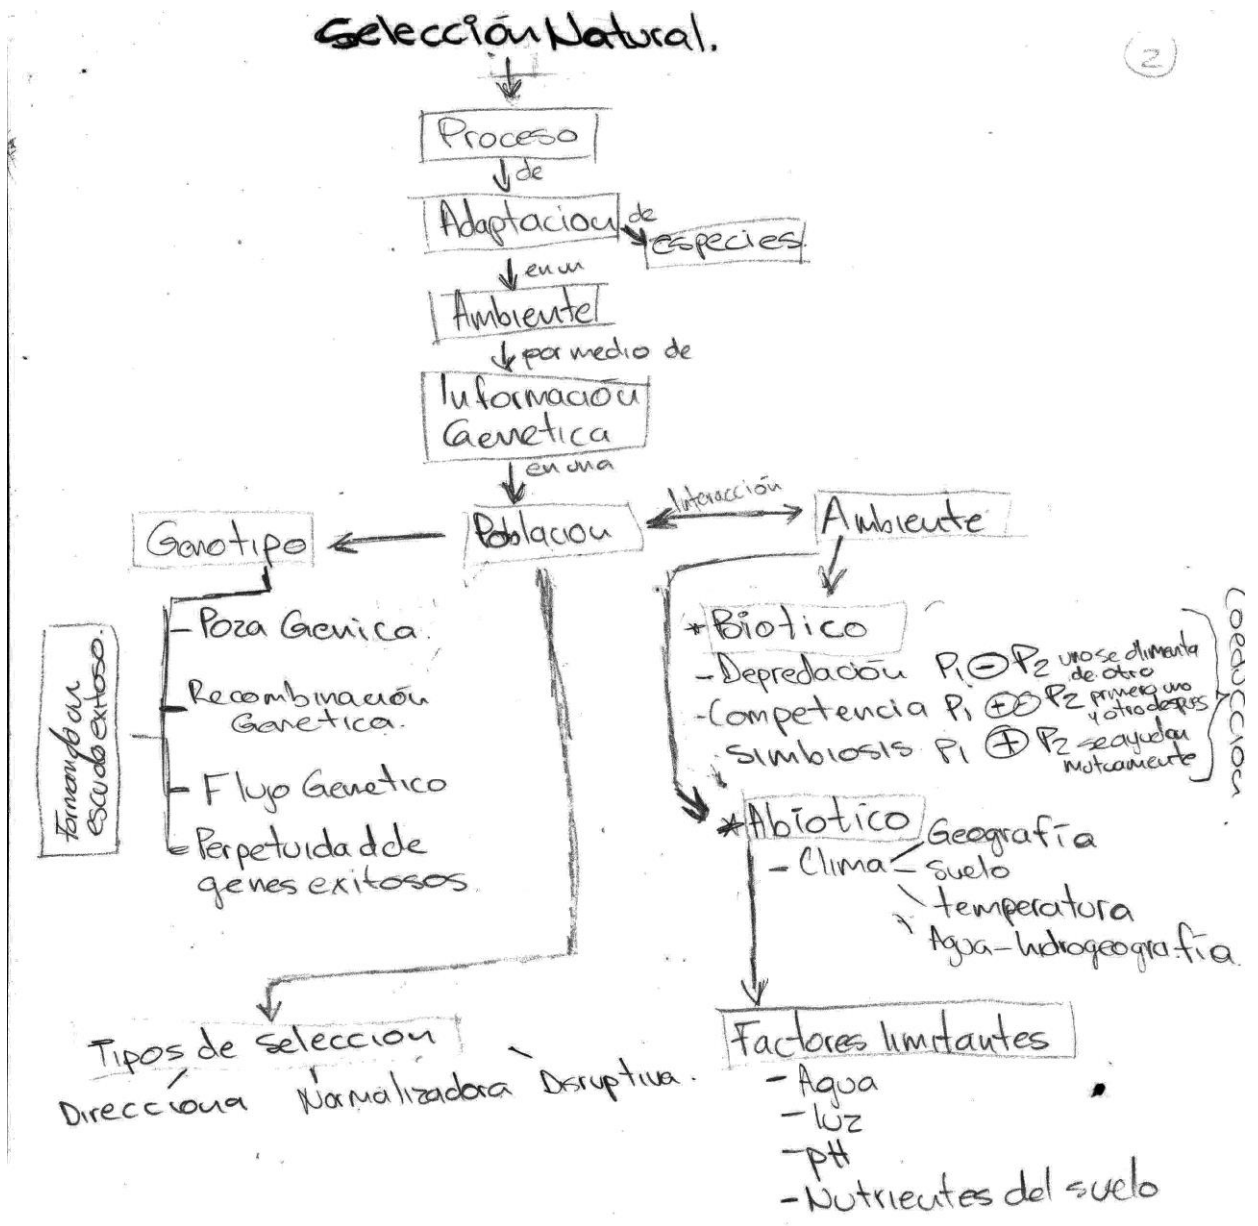 Selección Natural.
2
Proceso
de
Adaptacion de
especies.
en un
Ambiente
por medio de
Información
Genetica
en una
Genotipo
Población
Interacción
Ambiente
- Poza Genica.
Recombinación
Genetica.
- Flujo Genetico
- Perpetuidad de
genes exitosos.
Formando un
escudo exitoso.
* Biotico
- Depredación P1 ⊖ P2 uno se alimenta
de otro
- Competencia P1 ⊕⊖ P2 primero uno
y otro despues
Simbiosis P1 ⊕ P2 se ayudan
mutuamente
* Abiotico
- Clima
Geografía
- Suelo
temperatura
Agua - hidrogeografía.
Tipos de selección
Direcciona Normalizadora Disruptiva.
Factores limitantes
- Agua
- luz
- pH
- Nutrientes del suelo